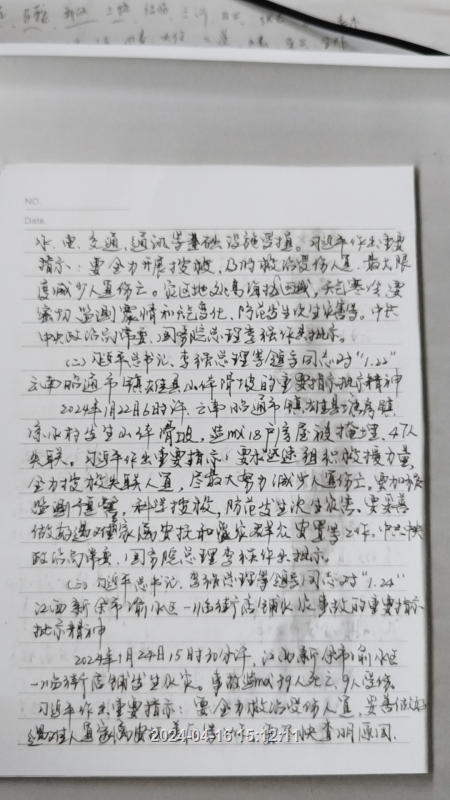 NO.
Date.
水、电、交通、通讯等基础设施受损。习近平作出重要
指示：要全力开展搜救，及时救治受伤人员，最大限
度减少人员伤亡。灾区地处高海拔区域，天气寒冷，要
密切监测震情和天气变化，防范发生次生灾害等。中共
中央政治局常委、国务院总理李强作出批示。
（二）习近平总书记、李强总理等领导同志对“1.22”
云南昭通市镇雄县山体滑坡的重要指示批示精神
2024年1月22日6时许，云南昭通市镇雄县塘房镇
凉水村发生山体滑坡，造成18户房屋被掩埋，47人
失联。习近平作出重要指示：要求迅速组织救援力量，
全力搜救失联人员，尽最大努力减少人员伤亡，要加强
监测预警，科学搜救，防范发生次生灾害。要妥善
做好遇难家属安抚和受灾群众安置等工作。中共中央
政治局常委、国务院总理李强作出批示。
（三）习近平总书记、李强总理等领导同志对“1.24”
江西新余市渝水区一临街店铺火灾事故的重要指示
批示精神
2024年1月24日15时许，江西新余市渝水区
一临街店铺发生火灾。事故造成39人死亡，9人受伤。
习近平作出重要指示：要全力救治受伤人员，妥善做好
遇难人员家属安抚善后等工作，尽快查明原因，
2024-04-16 15:12:11